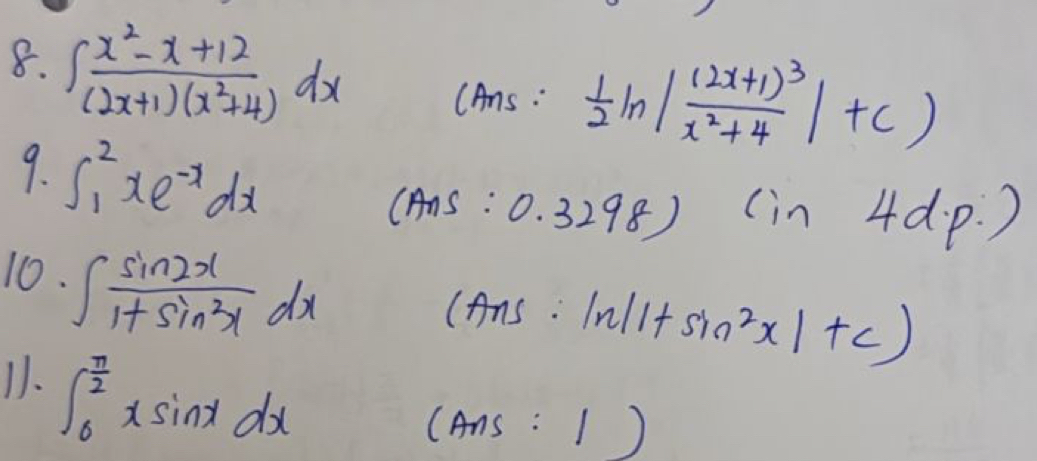 8. ∫ (x² - x + 12)/((2x+1)(x²+4)) dx (Ans : ½ ln | (2x+1)³/(x²+4) | + c )
9. ∫₁² xe⁻ˣ dx (Ans : 0.3298) (in 4d.p.)
10. ∫ sin2x/(1+ sin²x) dx (Ans : ln|1+ sin²x | + c)
11. ∫₀^(π/2) x sinx dx (Ans : 1 )